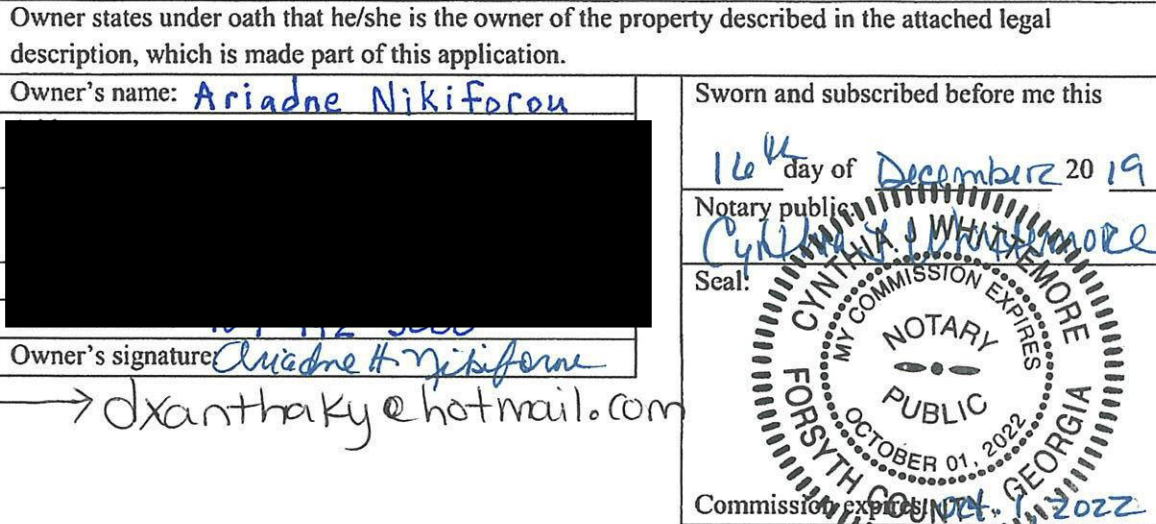 Owner states under oath that he/she is the owner of the property described in the attached legal
description, which is made part of this application.
Owner's name: Ariadne Nikiforou
Owner's signature: Ariadne H Nikiforou
→ dxanthaky@hotmail.com
Sworn and subscribed before me this
16th day of December 2019
Notary public:
Cynthia J. Whittemore
Seal:
CYNTHIA J WHITTEMORE
MY COMMISSION EXPIRES
NOTARY
PUBLIC
OCTOBER 01, 2022
FORSYTH COUNTY, GEORGIA
Commission expires: Oct. 1, 2022